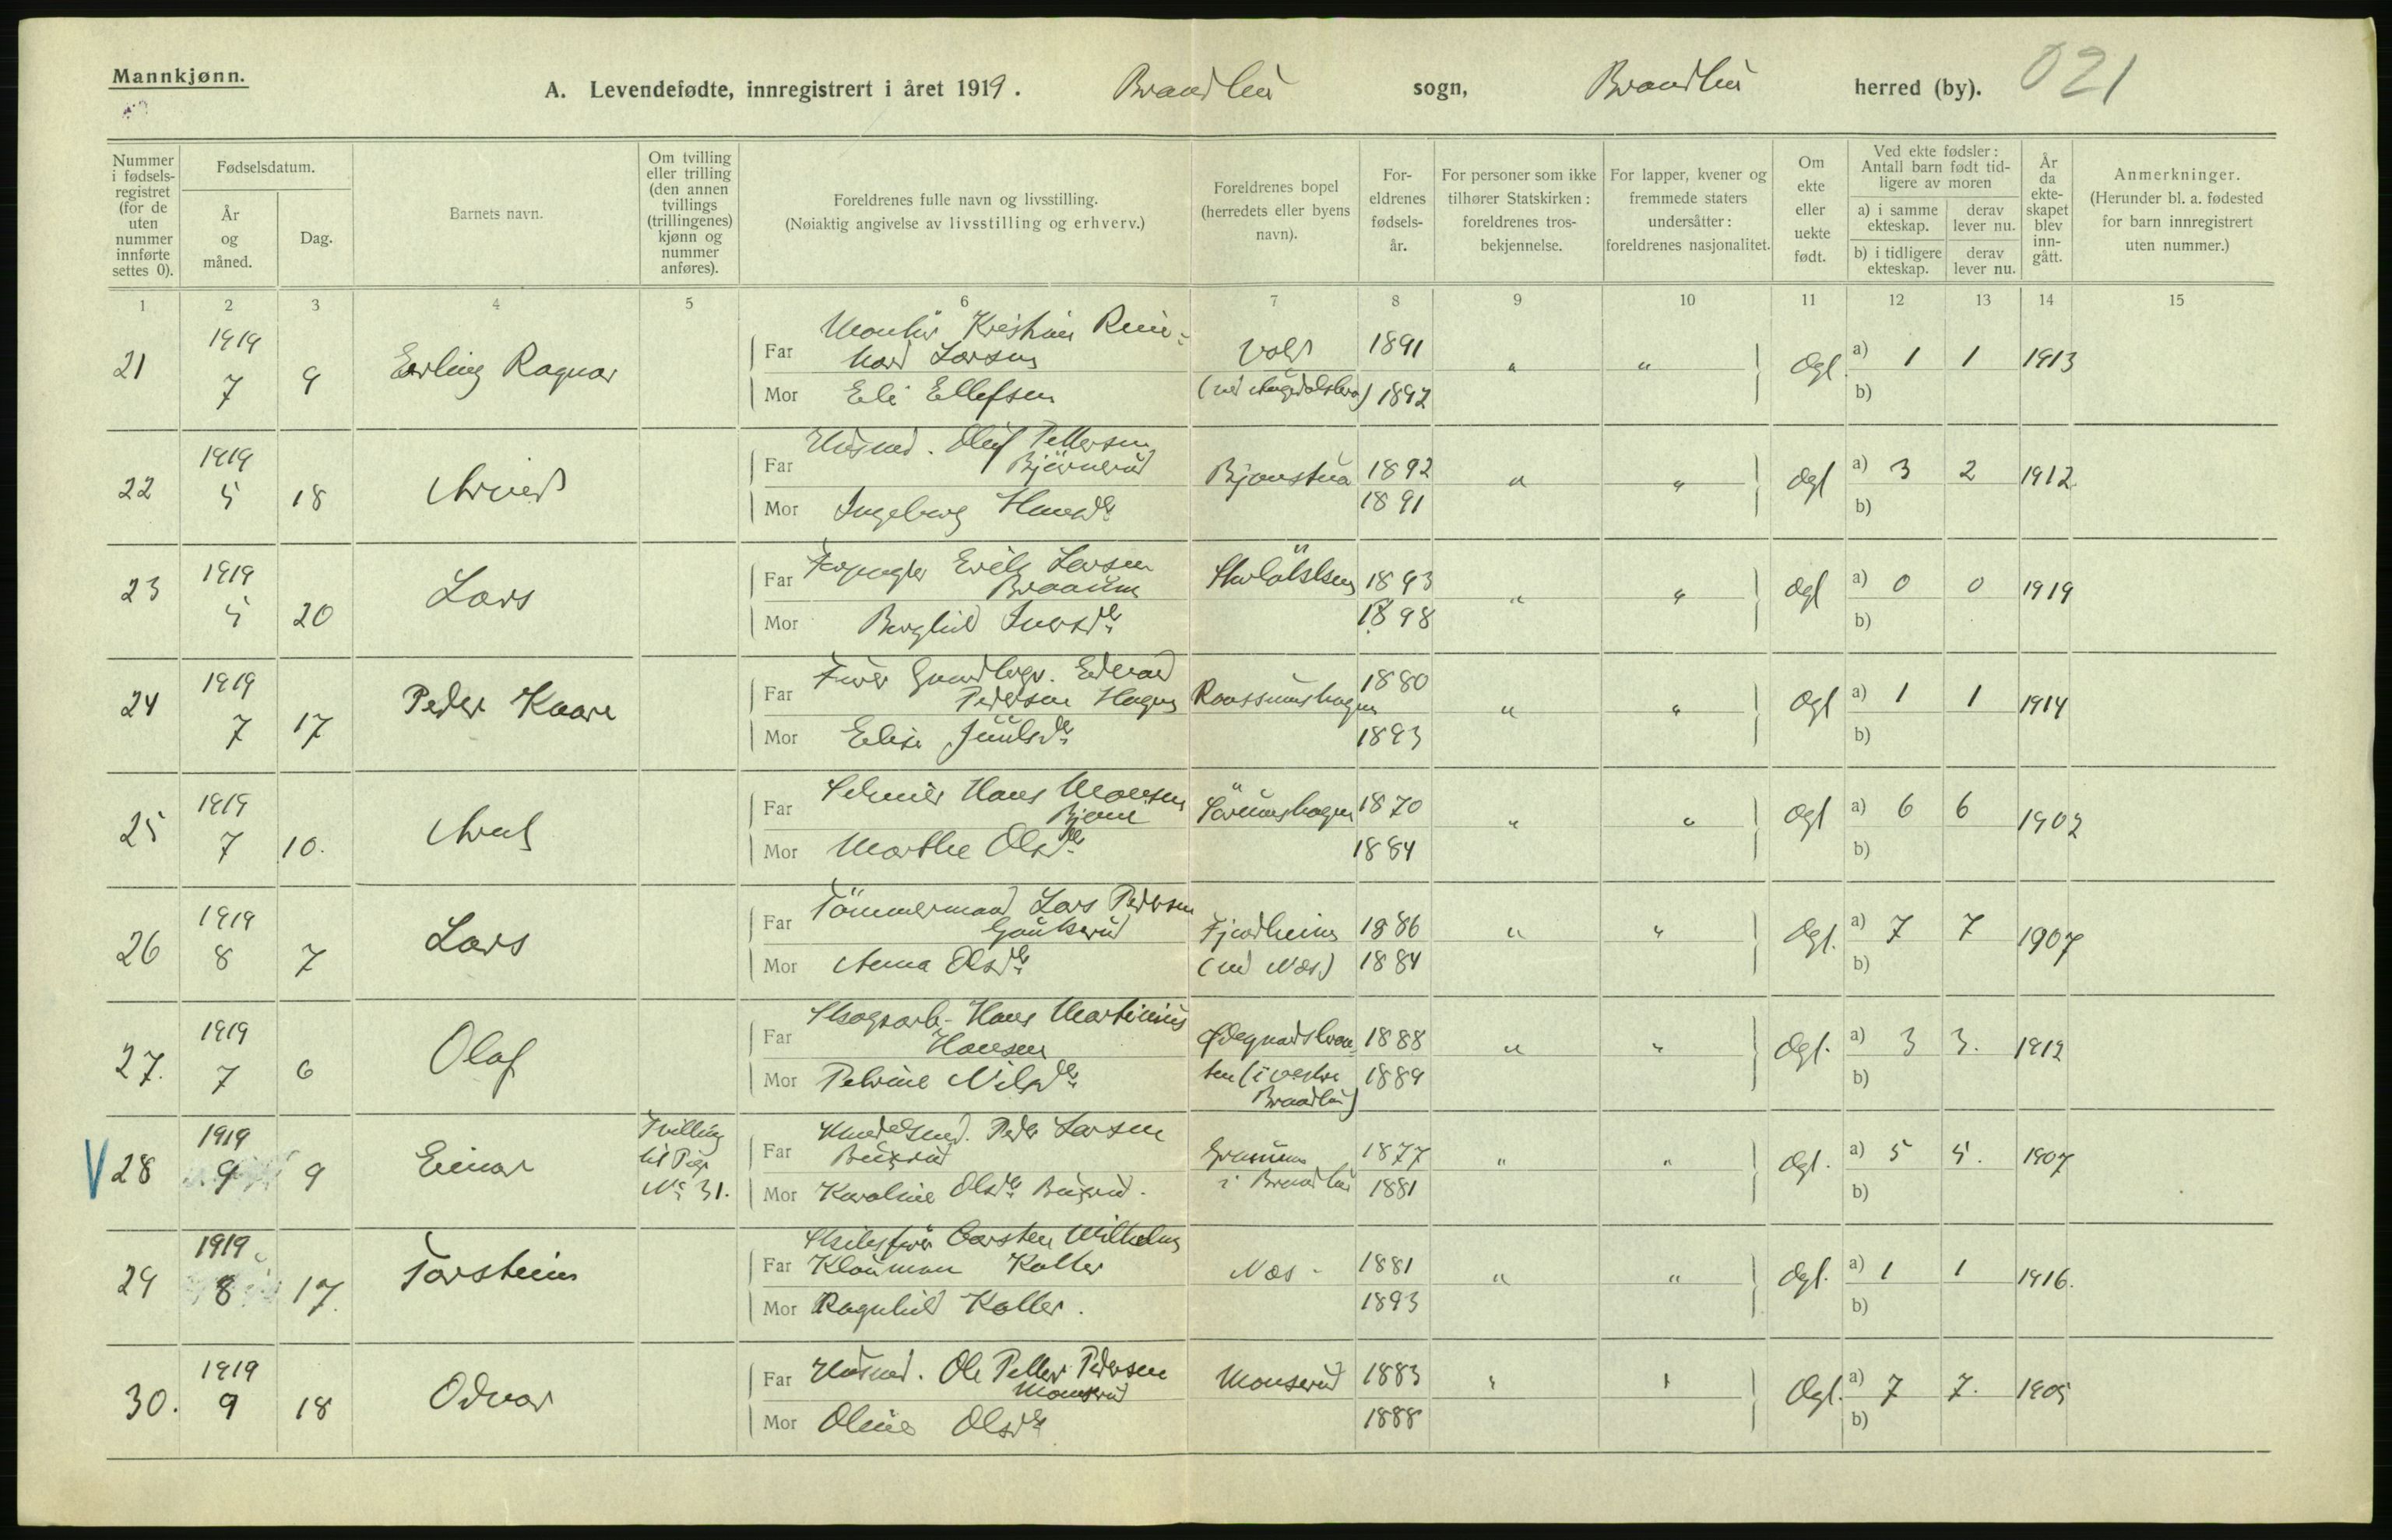 Mannkjønn.
A. Levendefødte, innregistrert i året 1919. Brandbu sogn, Brandbu herred (by). 021
Nummer i fødsels-registret (for de uten nummer innførte settes 0).
Fødselsdatum.
År og måned.
Dag.
Barnets navn.
Om tvilling eller trilling (den annen tvillings (trillingenes) kjønn og nummer anføres).
Foreldrenes fulle navn og livsstilling.
(Nøiaktig angivelse av livsstilling og erhverv.)
Foreldrenes bopel (herredets eller byens navn).
For-eldrenes fødsels-år.
For personer som ikke tilhører Statskirken: foreldrenes tros-bekjennelse.
For lapper, kvener og fremmede staters undersåtter: foreldrenes nasjonalitet.
Om ekte eller uekte født.
Ved ekte fødsler: Antall barn født tid-ligere av moren
a) i samme ekteskap.
derav lever nu.
b) i tidligere ekteskap.
derav lever nu.
År da ekte-skapet blev inn-gått.
Anmerkninger.
(Herunder bl. a. fødested for barn innregistrert uten nummer.)
1 2 3 4 5 6 7 8 9 10 11 12 13 14 15
21 1919 7 9 Erling Ragnar
Far Montør Kristian Rein-
hard Larsen Vold 1891 " " Ogl. a) 1 1 1913
Mor Eli Ellefsen 1892 b)
22 1919 5 18 Arvid
Far Husmd. Oluf Pettersen
Bjørnerud Bjonstua 1892 " " Ogl a) 3 2 1912
Mor Ingeborg Hansdtr 1891 b)
23 1919 5 20 Lars
Far Erik Larsen
Braaum 1893 " " Ogl a) 0 0 1919
Mor Borghild Iversdtr 1898 b)
24 1919 7 17 Peder Kaare
Far Edvard
Pedersen Hagen Raassumshagen 1880 " " Ogl a) 1 1 1914
Mor Elise Juulsdtr 1893 b)
25 1919 7 10. Arent
Far Hans Monsen
Bjone Sörumshagen 1870 " " Ogl a) 6 6 1902
Mor Marthe Olsdtr 1884 b)
26 1919 8 7 Lars
Far Tömmermand Lars Pedersen
Gaukerud Fjordheim 1886 " " Ogl. a) 7 7 1907
Mor Anna Olsdtr (ved Næs) 1884 b)
27. 1919 7 6 Olaf
Far Skogsarb. Hans Martinius
Hansen 1888 " " Ogl. a) 3 3. 1912
Mor Petrine Nilsdtr (i vestre 1889 b)
Brandbu)
V 28 1919 9 9 Einar Tvilling
til Pige
No 31.
Far Peder Larsen
Beiserud Granum 1877 " " Ogl. a) 5 5. 1907
Mor Karoline Olsdtr Beiserud. i Brandbu 1881 b)
29 1919 8 17. Torstein
Far Skibsfører Carsten Wilhelm
Klouman Koller Næs 1881 " " Ogl. a) 1 1 1916.
Mor Ragnhild Koller. 1893 b)
30. 1919 9 18 Odvar
Far Husmd. Ole Petter Pedersen
Monserud Monserud 1883 " " Ogl. a) 7 7. 1905
Mor Oline Olsdtr 1888 b)